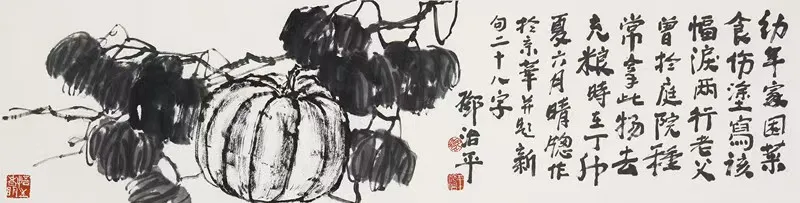 幼年家园菜
食伤塗寫该
幅淚两行老父
曾於庭院種
常拿此物去
充粮時
夏六月晴窗作
於京華并题新
句二十八字
鄧治平